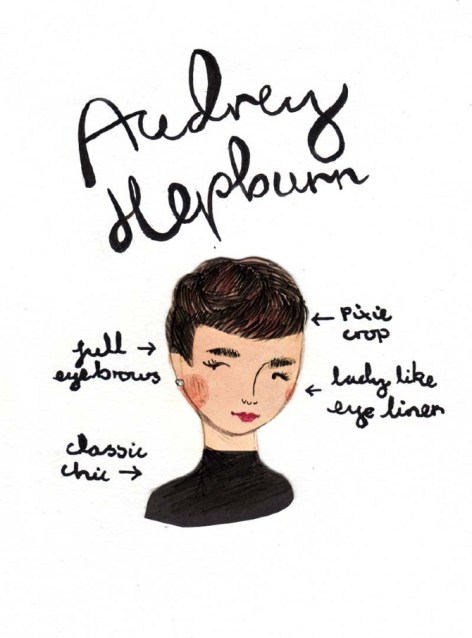 Audrey
Hepburn
← Pixie
crop
full →
eyebrows
← lady like
eye liner
classic
chic →